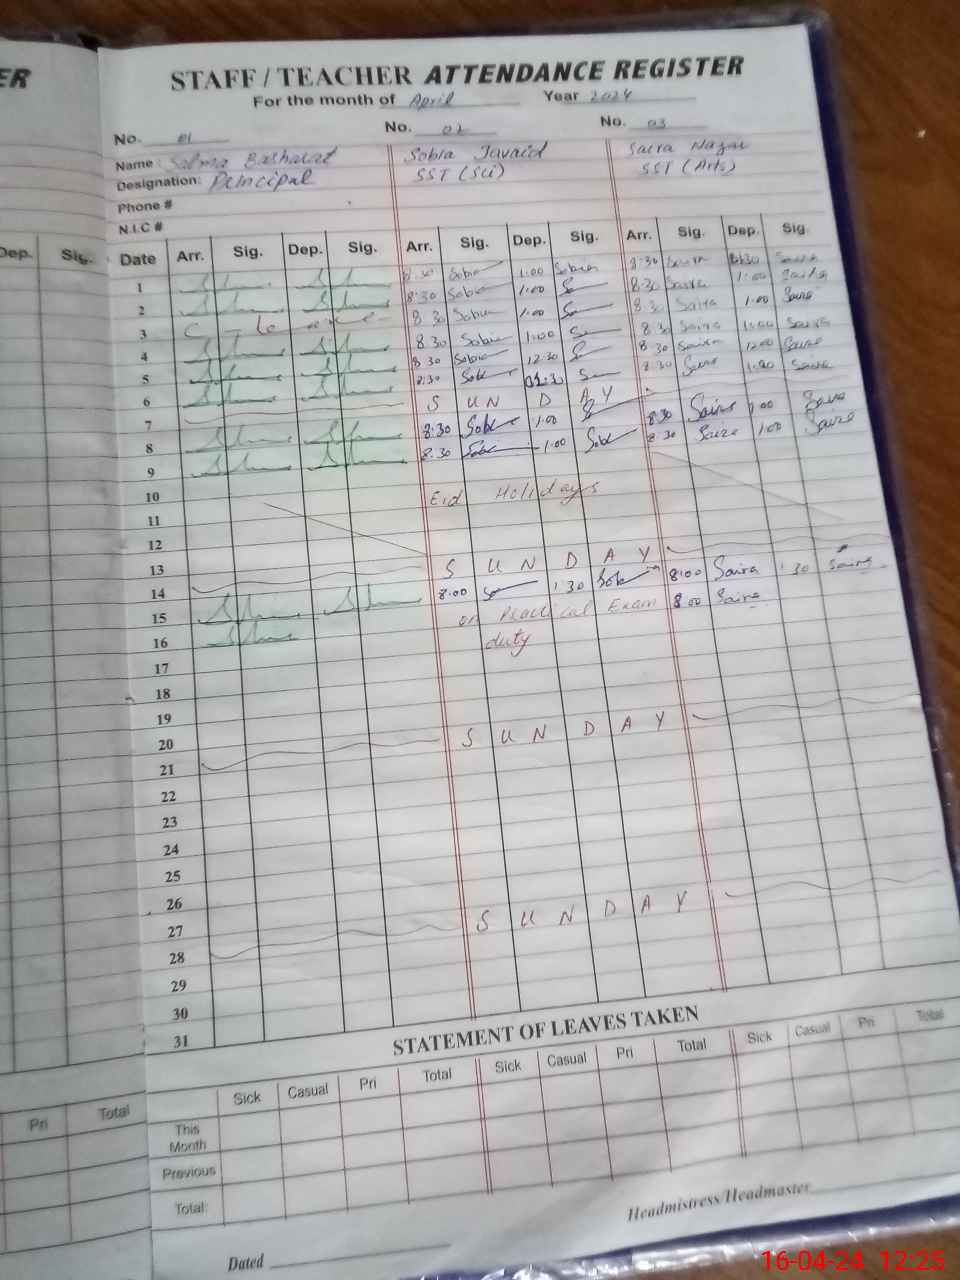 ER
STAFF / TEACHER ATTENDANCE REGISTER
For the month of April Year 2024
No. 01 No. 02 No. 03
Name : Salma Basharat Sobia Javaid Saira Nazar
Designation: Principal SST (Sci) SST (Arts)
Phone #
N.I.C #
Dep. Sig. Date Arr. Sig. Dep. Sig. Arr. Sig. Dep. Sig. Arr. Sig. Dep. Sig.
1 8:30 Sobia 1:00 Sobia 8:30 Saira Saira
2 8:30 Sobia 1:00 8:30 Saira 1:00 Saira
3 C - leave 8 30 Sobia 1:00 8:30 Saira 1:00 Saira
4 8 30 Sobia 1:00 8:30 Saira Saira
5 8 30 Sobia 12:30 8 30 Saira 12:00 Saira
6 8:30 Sobia 8:30 Saira Saira
7 S U N D A Y
8 8:30 Sobia 1:00 8:30 Saira 1:00 Saira
9 8:30 Sobia 1:00 Sobia 8 30 Saira 1:00 Saira
10
11 Eid Holidays
12
13
14 S U N D A Y
15 8:00 1:30 Sobia 8:00 Saira 1 30 Saira
16 on Practical Exam 8 00 Saira
duty
17
18
19
20
21 S U N D A Y
22
23
24
25
26
27
28 S U N D A Y
29
30
31
STATEMENT OF LEAVES TAKEN
Pri Total Sick Casual Pri Total Sick Casual Pri Total Sick Casual Pri Total
This
Month
Previous
Total:
Headmistress/Headmaster
Dated
16-04-24 12:25